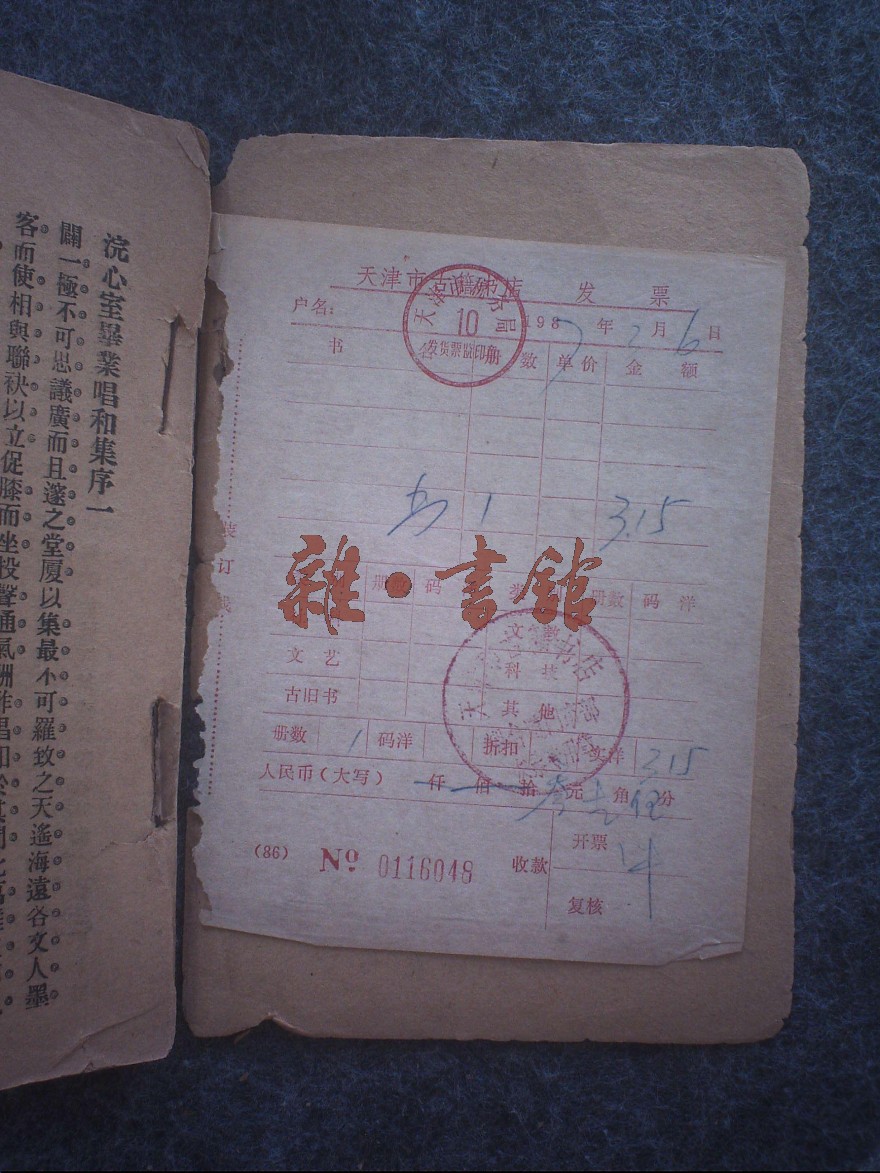 浣心室畢業唱和集序一
闢一極不可思議廣而且邃之堂厦以集最不可羅致之天遙海遠各文人墨
客而使相與聯袂以立促膝而坐投聲通氣酬酢唱和於其間此
天津市古籍书店 发票
户名: 1987年2月6日
10
发货票监印章
书 名 册数 单价 金额
1 3.15
雜·書館
装订线
册数 码 类 册数 码洋
文教
文艺 科技
古旧书 其他
册数 1 码洋 折扣 实洋 3.15
人民币(大写) 仟 佰 拾 叁元 壹角 伍分
(86) No 0116048 收款 开票
复核